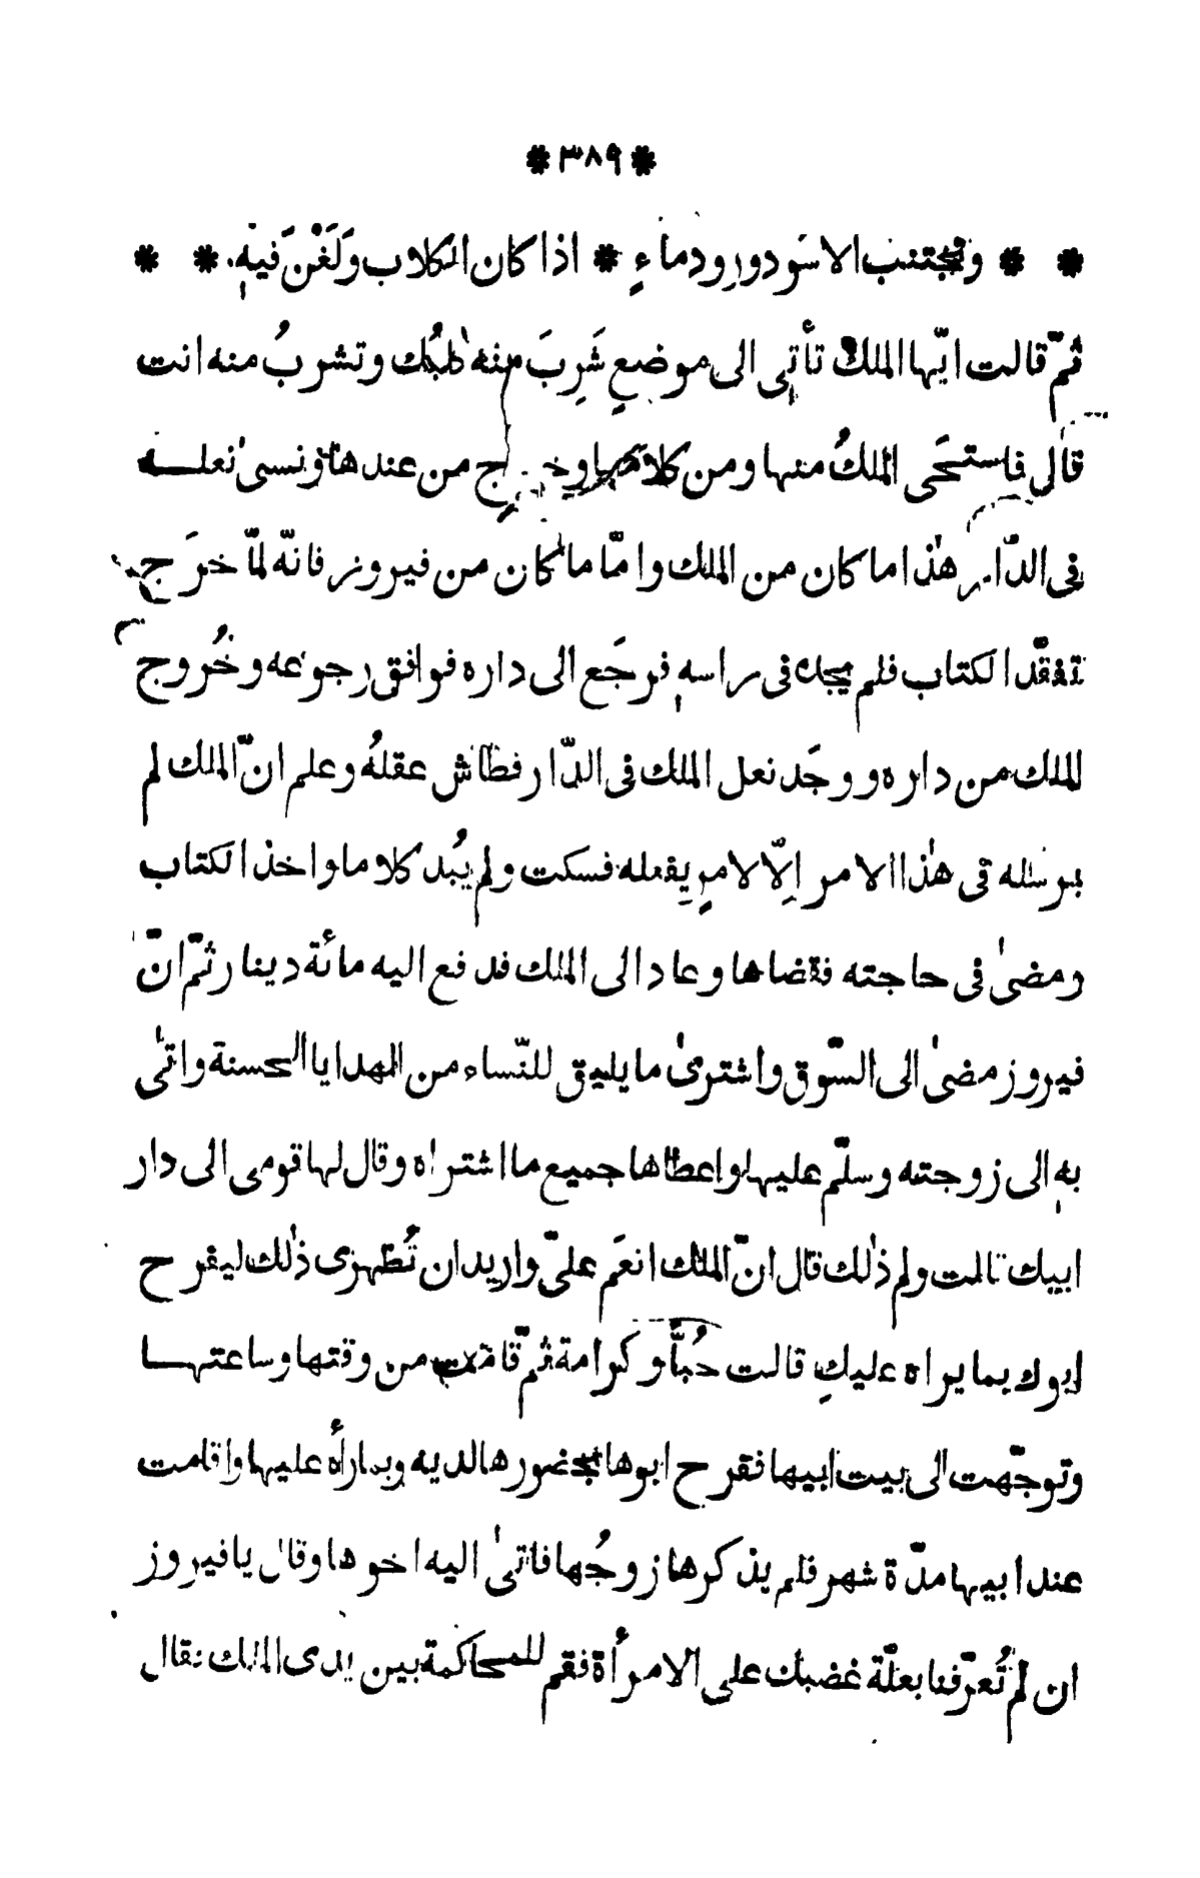 * ٣٨٩ *
* * وتجتنب الاسَودورودماءٍ * اذا كان الكلاب وَلَغْنَ فيهِ * *
ثمّ قالت ايّها الملكُ تأتى الى موضعٍ شَرِبَ منه كلبُك وتشربُ منه انت
قال فاستحَى الملكُ منها ومن كلامها وخرج من عندها ونسى نعلــه
فى الدّار هٰذا ما كان من الملك وامّا ما كان من فيروز فانّه لمّا خرَج
تفقّد الكتاب فلم يجده فى راسهٖ فرجَع الى داره فوافق رجوعه وخُروج
الملك من داره ووجَد نعل الملك فى الدّار فطاش عقلهُ وعلم انّ الملك لم
يرسله فى هٰذا الامر اِلّا لامرٍ يفعله فسكت ولم يُبد كلاما واخذ الكتاب
ومضىٰ فى حاجته فقضاها وعاد الى الملك فدفع اليه مائة دينار ثمّ انّ
فيروز مضىٰ الى السّوق واشترىٰ ما يليق للنّساء من الهدايا الحسنة واتىٰ
بهٖ الى زوجته وسلّم عليها واعطاها جميع ما اشتراه وقال لها قومى الى دار
ابيك قالت ولم ذٰلك قال انّ الملك انعَم علىّ واريد ان تُظهرى ذٰلك ليفرح
ابوك بما يراه عليكِ قالت حُبًّا وكرامة ثمّ قامت من وقتها وساعتهــا
وتوجّهت الى بيت ابيها ففرح ابوها بحضورها لديه وبما رأه عليها واقامت
عند ابيها مدّة شهر فلم يذكرها زوجُها فاتىٰ اليه اخوها وقال يا فيروز
ان لم تُعرّفنا بعلّة غضبك على الامرأة فقم للمحاكمة بين يدى الملك فقال